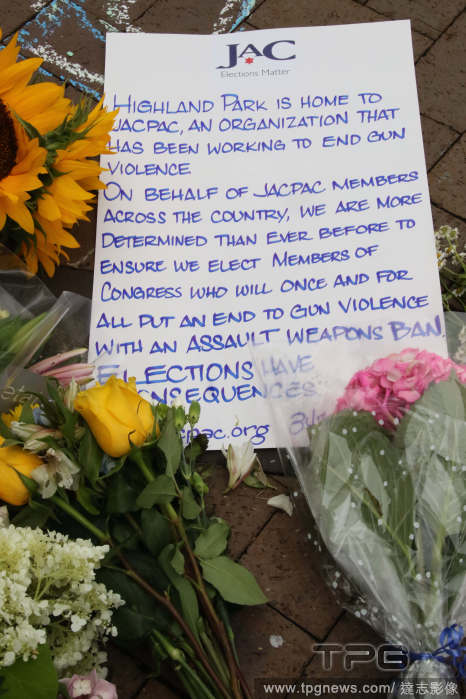 JAC
Elections Matter
HIGHLAND PARK IS HOME TO
JACPAC, AN ORGANIZATION THAT
HAS BEEN WORKING TO END GUN
VIOLENCE
ON BEHALF OF JACPAC MEMBERS
ACROSS THE COUNTRY, WE ARE MORE
DETERMINED THAN EVER BEFORE TO
ENSURE WE ELECT MEMBERS OF
CONGRESS WHO WILL ONCE AND FOR
ALL PUT AN END TO GUN VIOLENCE
WITH AN ASSAULT WEAPONS BAN
ELECTIONS HAVE
NSEQUENCES
pac.org
TPG
www.tpgnews.com / 達志影像